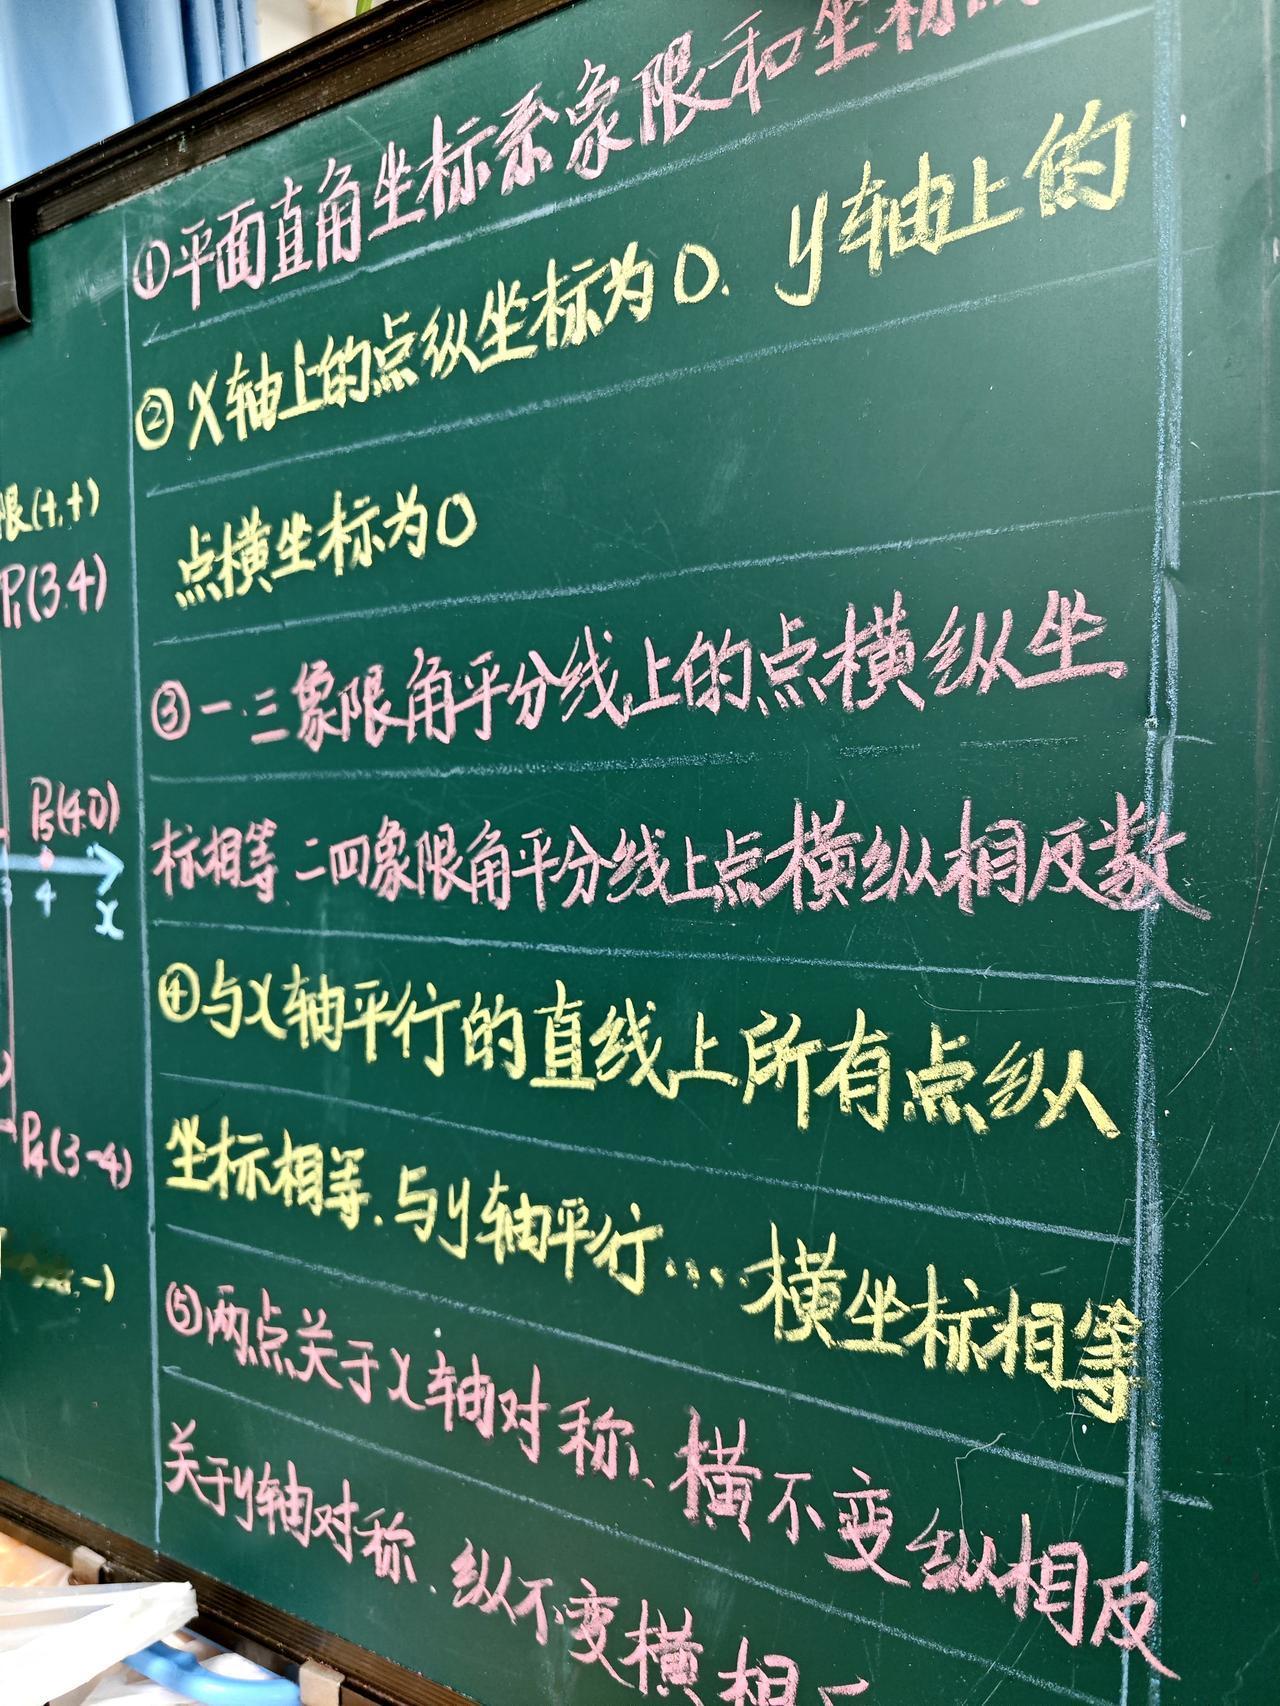 ①平面直角坐标系象限和坐标
②x轴上的点纵坐标为0.y轴上的
点横坐标为0
③一.三象限角平分线上的点横纵坐
标相等.二四象限角平分线上点横纵相反数
④与x轴平行的直线上所有点纵
坐标相等.与y轴平行...横坐标相等
⑤两点关于x轴对称、横不变纵相反
关于y轴对称.纵不变横相
限(+,+)
P₁(3.4)
P₅(4.0)
3
4
x
P₄(3-4)
-)